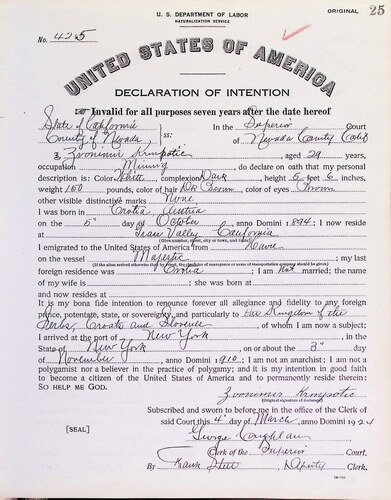 U. S. DEPARTMENT OF LABOR
NATURALIZATION SERVICE
ORIGINAL 25
No. 425
UNITED STATES OF AMERICA
DECLARATION OF INTENTION
Invalid for all purposes seven years after the date hereof
State of California
County of Nevada ss: In the Superior Court of Nevada County Calif
I, Zvonimir Krmpotic, aged 29 years,
occupation Mining, do declare on oath that my personal
description is: Color White, complexion Dark, height 5 feet 6 inches,
weight 160 pounds, color of hair Dk Brown, color of eyes Brown
other visible distinctive marks None
I was born in Crotia Austria
on the 5" day of October, anno Domini 1894; I now reside
at Grass Valley California
(Give number, street, city or town, and State.)
I emigrated to the United States of America from Havre
on the vessel Majestic; my last
foreign residence was Crotia; I am not married; the name
of my wife is; she was born at
and now resides at
It is my bona fide intention to renounce forever all allegiance and fidelity to any foreign
prince, potentate, state, or sovereignty, and particularly to the Kingdom of the
Serbs, Croats and Slovenes, of whom I am now a subject;
I arrived at the port of New York, in the
State of New York, on or about the 3" day
of November, anno Domini 1910; I am not an anarchist; I am not a
polygamist nor a believer in the practice of polygamy; and it is my intention in good faith
to become a citizen of the United States of America and to permanently reside therein:
SO HELP ME GOD.
Zvonimir Krmpotic
(Original signature of declarant.)
Subscribed and sworn to before me in the office of the Clerk of
[SEAL] said Court this 4" day of March, anno Domini 1924
George Coughlan
Clerk of the Superior Court.
By Frank, Deputy Clerk.